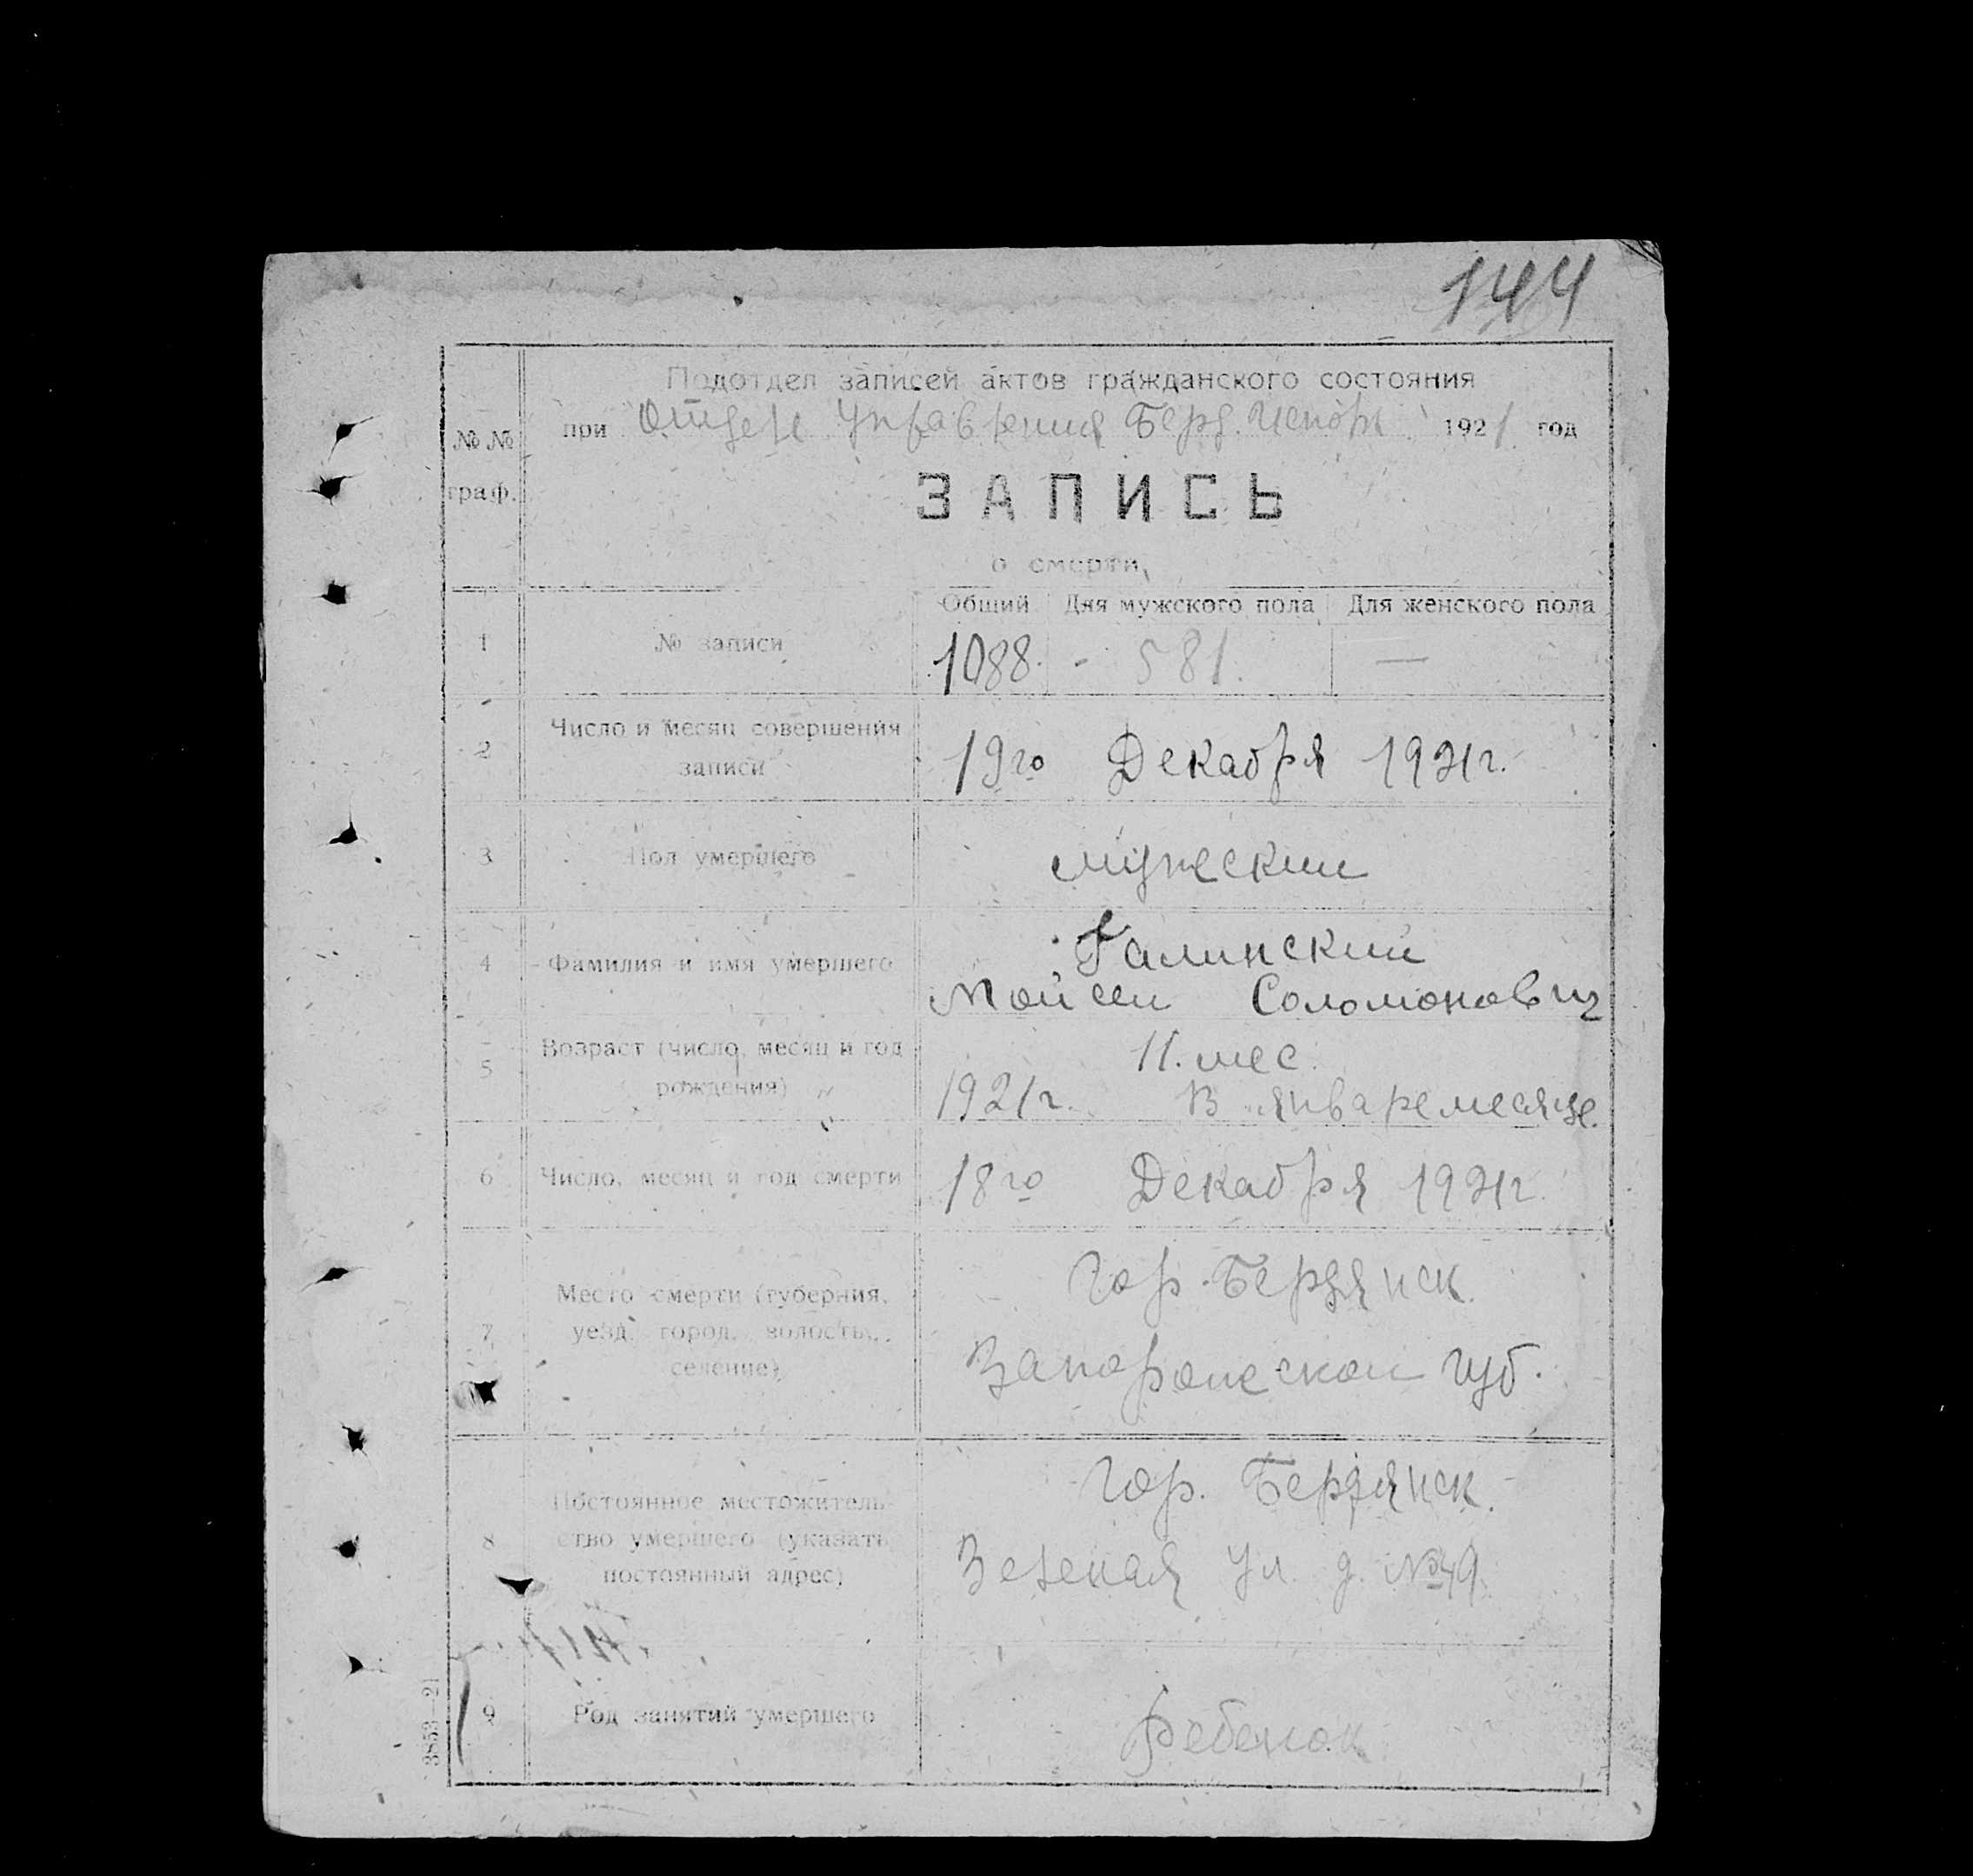 144
Подотдел записей актов гражданского состояния
при Отделе Управления Берд. Исполк. 1921 год
№№ граф.
ЗАПИСЬ
о смерти
Общий Для мужского пола Для женского пола
1 № записи 1088. - 581. —
2 Число и месяц совершения записи 19го Декабря 1921г.
3 Пол умершего мужеский
4 Фамилия и имя умершего Галинский
Мойсей Соломонович
5 Возраст (число, месяц и год рождения) 11. мес.
1921г. в январе месяце.
6 Число, месяц и год смерти 18го Декабря 1921г.
7 Место смерти (губерния, уезд, город, волость, селение) Гор. Бердянск.
Запорожской губ.
8 Постоянное местожительство умершего (указать постоянный адрес) Гор. Бердянск.
Зеленая ул. д. №49.
9 Род занятий умершего ребенок
3853—21